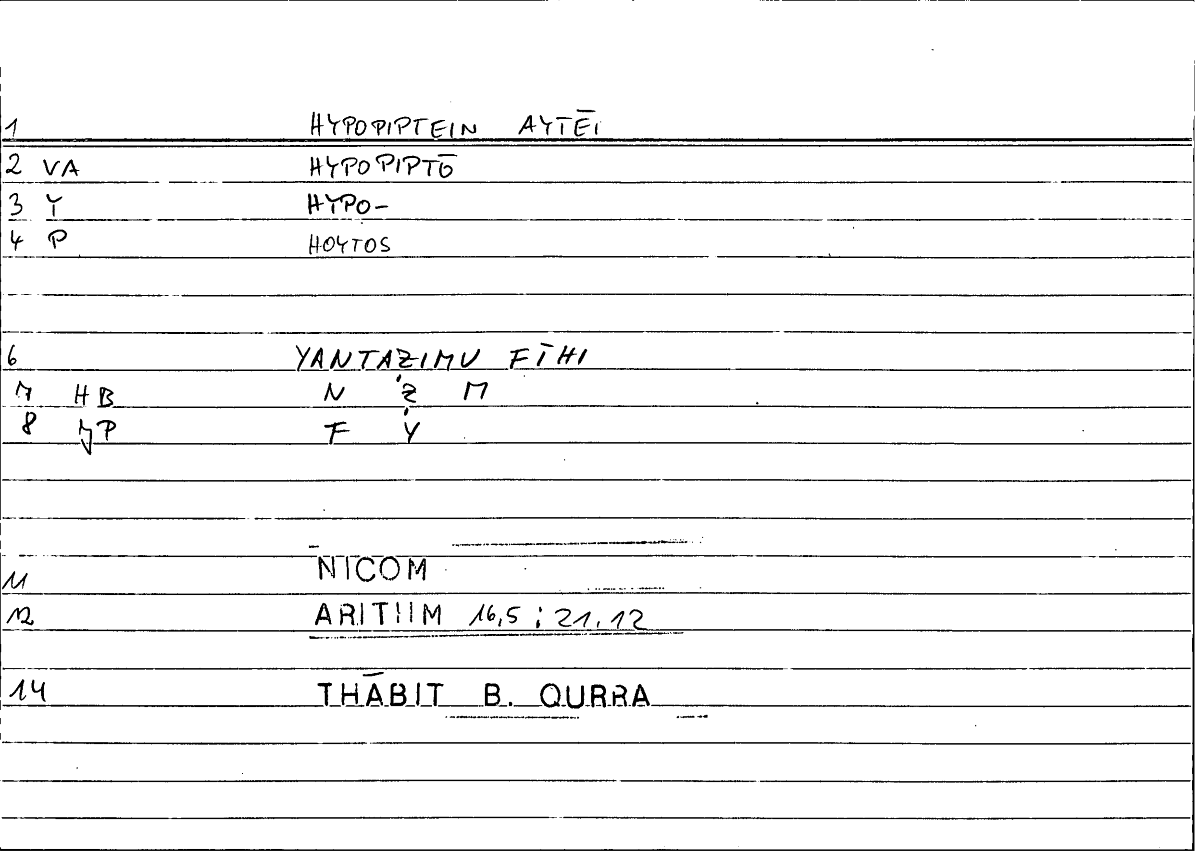 1 HYPOPIPTEIN AYTĒI
2 VA HYPOPIPTŌ
3 Y HYPO-
4 P HOYTOS
6 YANTAẒIMU FĪHI
7 HB N Ẓ M
8 JP F Y
11 NICOM
12 ARITHM 16,5 ; 21,12
14 THĀBIT B. QURRA